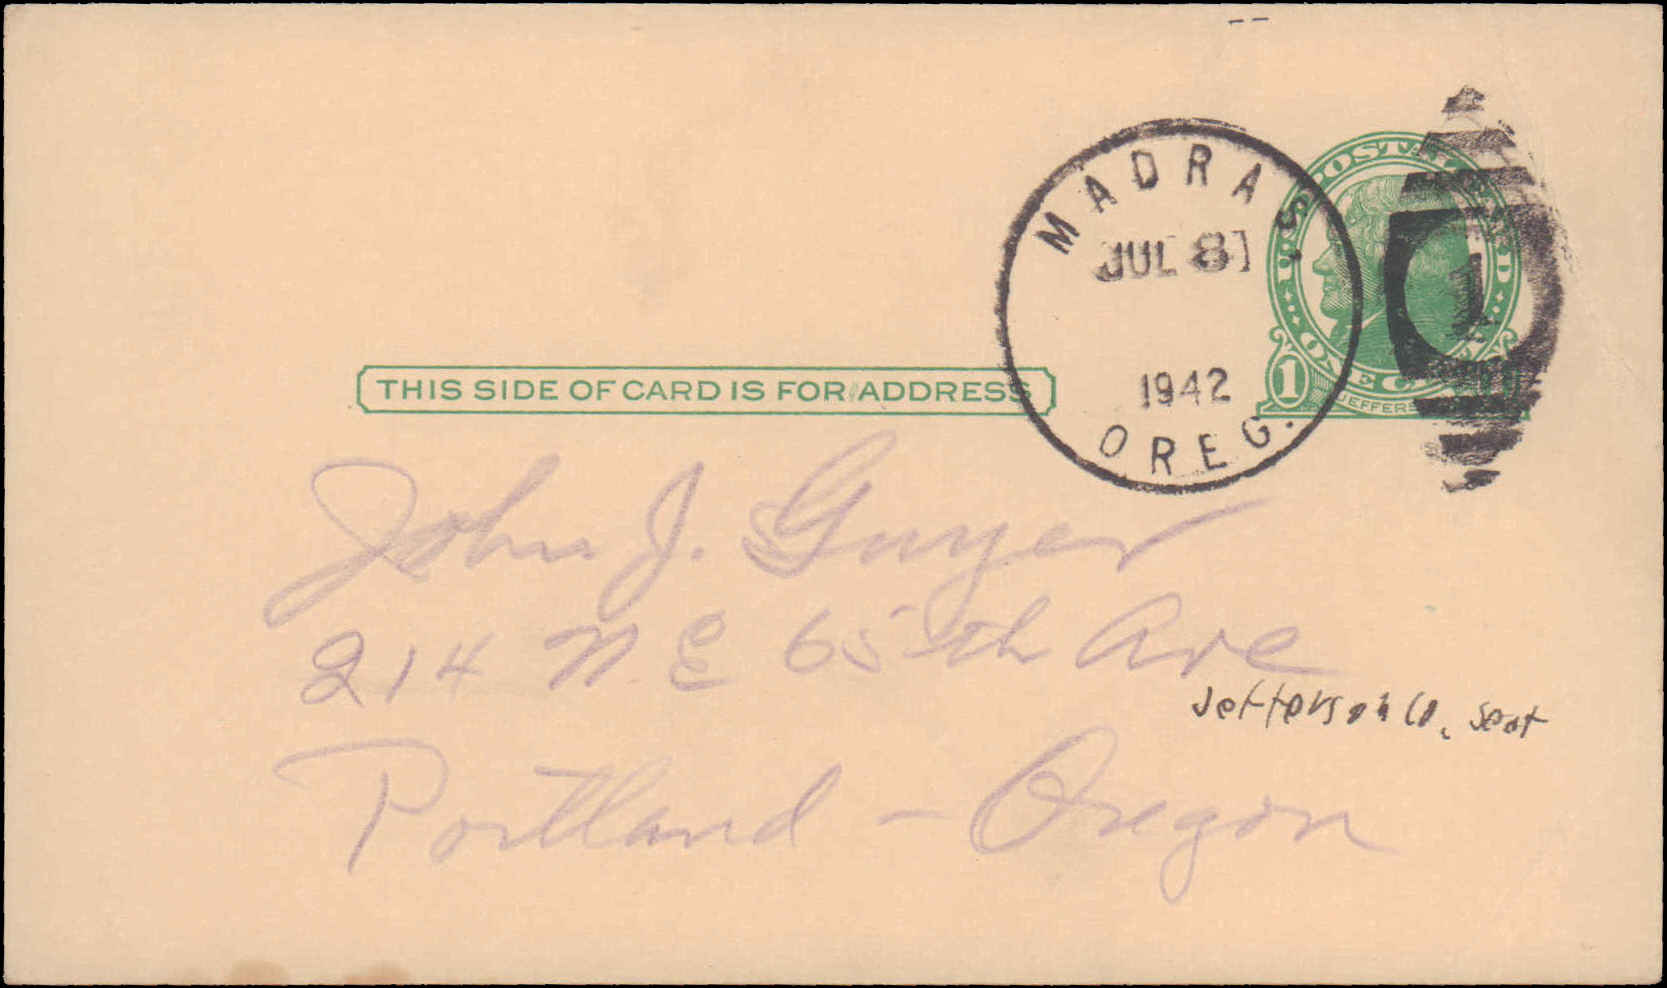 MADRAS.
JUL 8
1942
OREG.
U.S. POSTAL CARD
1
ONE
JEFFERS
1
THIS SIDE OF CARD IS FOR ADDRESS
John J. Guyer
214 N. E 65th Ave
Jefferson Co. Seat
Portland - Oregon